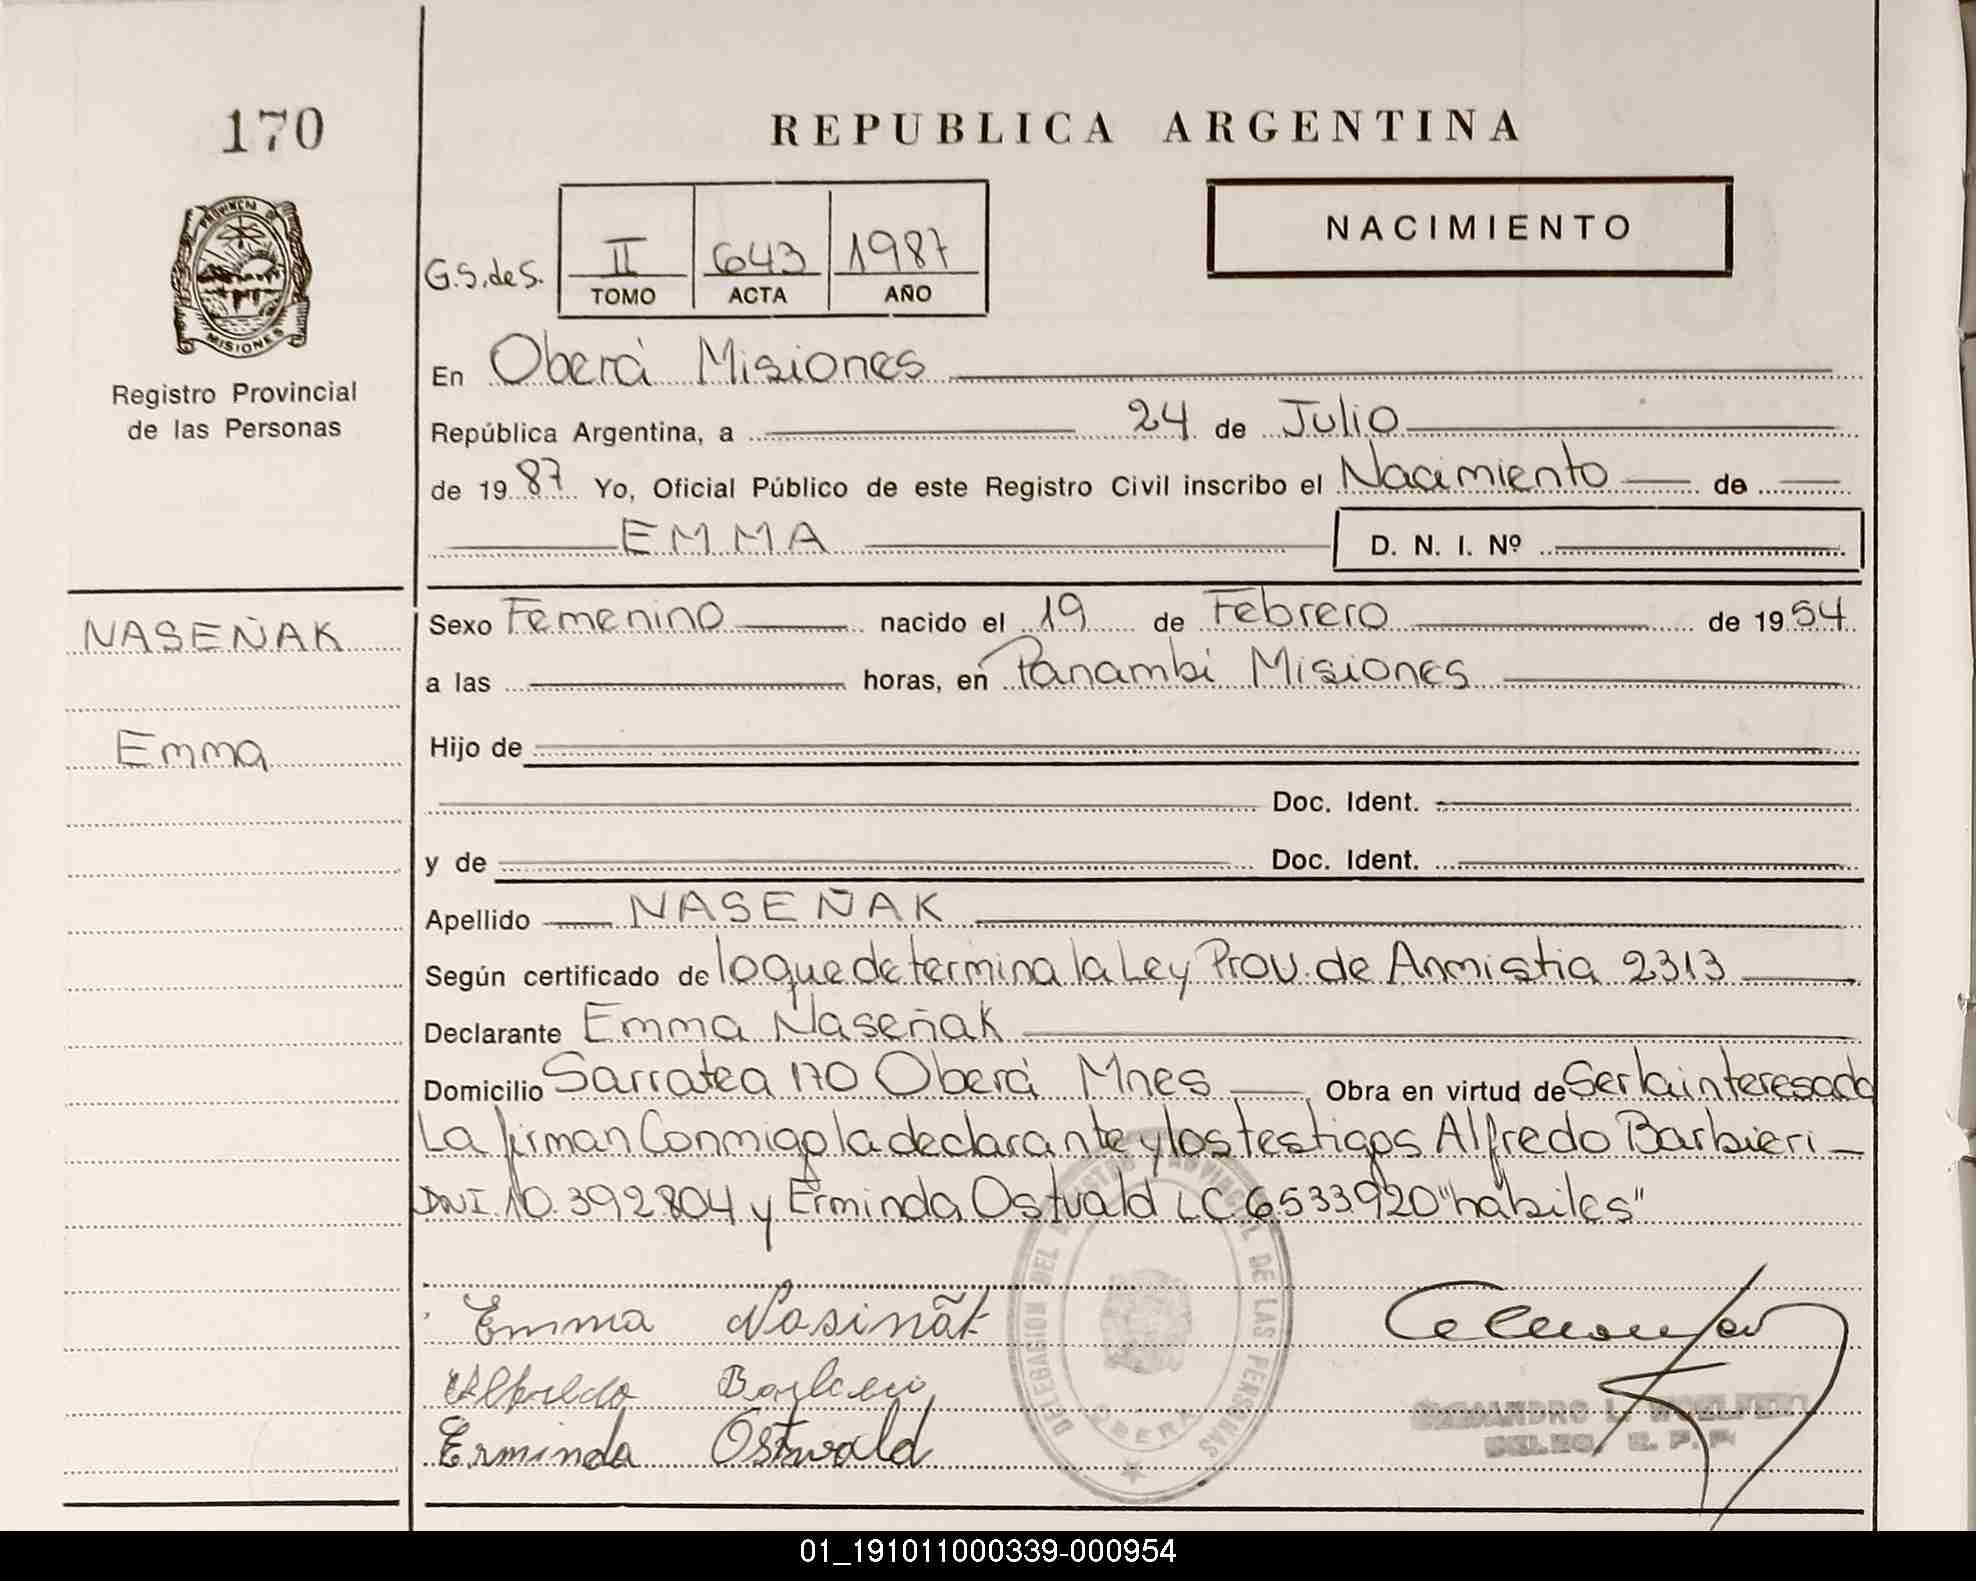 170
REPUBLICA ARGENTINA
PROVINCIA DE
MISIONES
Registro Provincial
de las Personas
NACIMIENTO
G.S. de S.
II 643 1987
TOMO ACTA AÑO
En Oberá Misiones
República Argentina, a 24 de Julio
de 1987 Yo, Oficial Público de este Registro Civil inscribo el Nacimiento de
EMMA D. N. I. Nº
NASEÑAK
Emma
Sexo Femenino nacido el 19 de Febrero de 1954
a las horas, en Panambi Misiones
Hijo de
Doc. Ident.
y de Doc. Ident.
Apellido NASEÑAK
Según certificado de lo que determina la Ley Prov. de Anmistia 2313
Declarante Emma Naseñak
Domicilio Sarratea 170 Oberá Mnes Obra en virtud de Ser la interesada
La firman Conmigo la declarante y los testigos Alfredo Barbieri
DNI. 10.392804 y Erminda Ostvald LC 6533920 "habiles"
Emma Nasiñak
Alfredo Barbieri
Erminda Ostwald
DELEGACION DEL REGISTRO PROVINCIAL DE LAS PERSONAS
OBERA
01_191011000339-000954